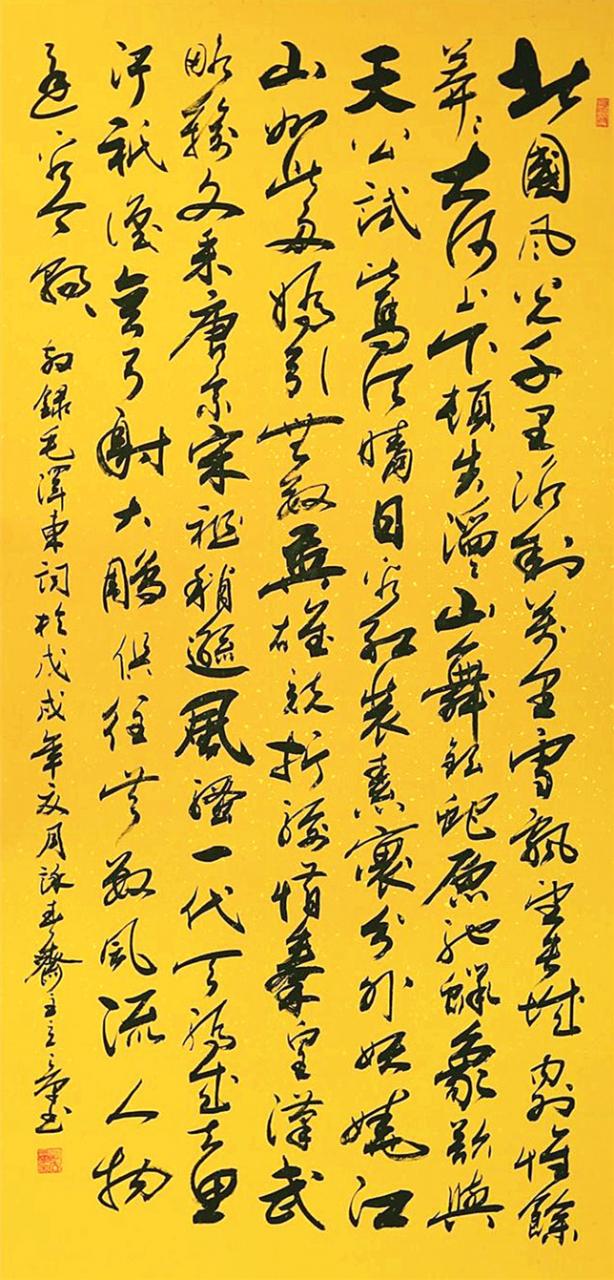 北國风光千里冰封萬里雪飄望長城內外惟餘
莽莽大河上下頓失滔滔山舞銀蛇原馳蠟象欲與
天公試比高須晴日看紅裝素裹分外妖嬈江
山如此多嬌引無數英雄競折腰惜秦皇漢武
略輸文采唐宗宋祖稍遜風騷一代天驕成吉思
汗祇識彎弓射大鵰俱往矣數風流人物
還看今朝
敬錄毛澤東詞於戊戌年夏月詠春齋主立書